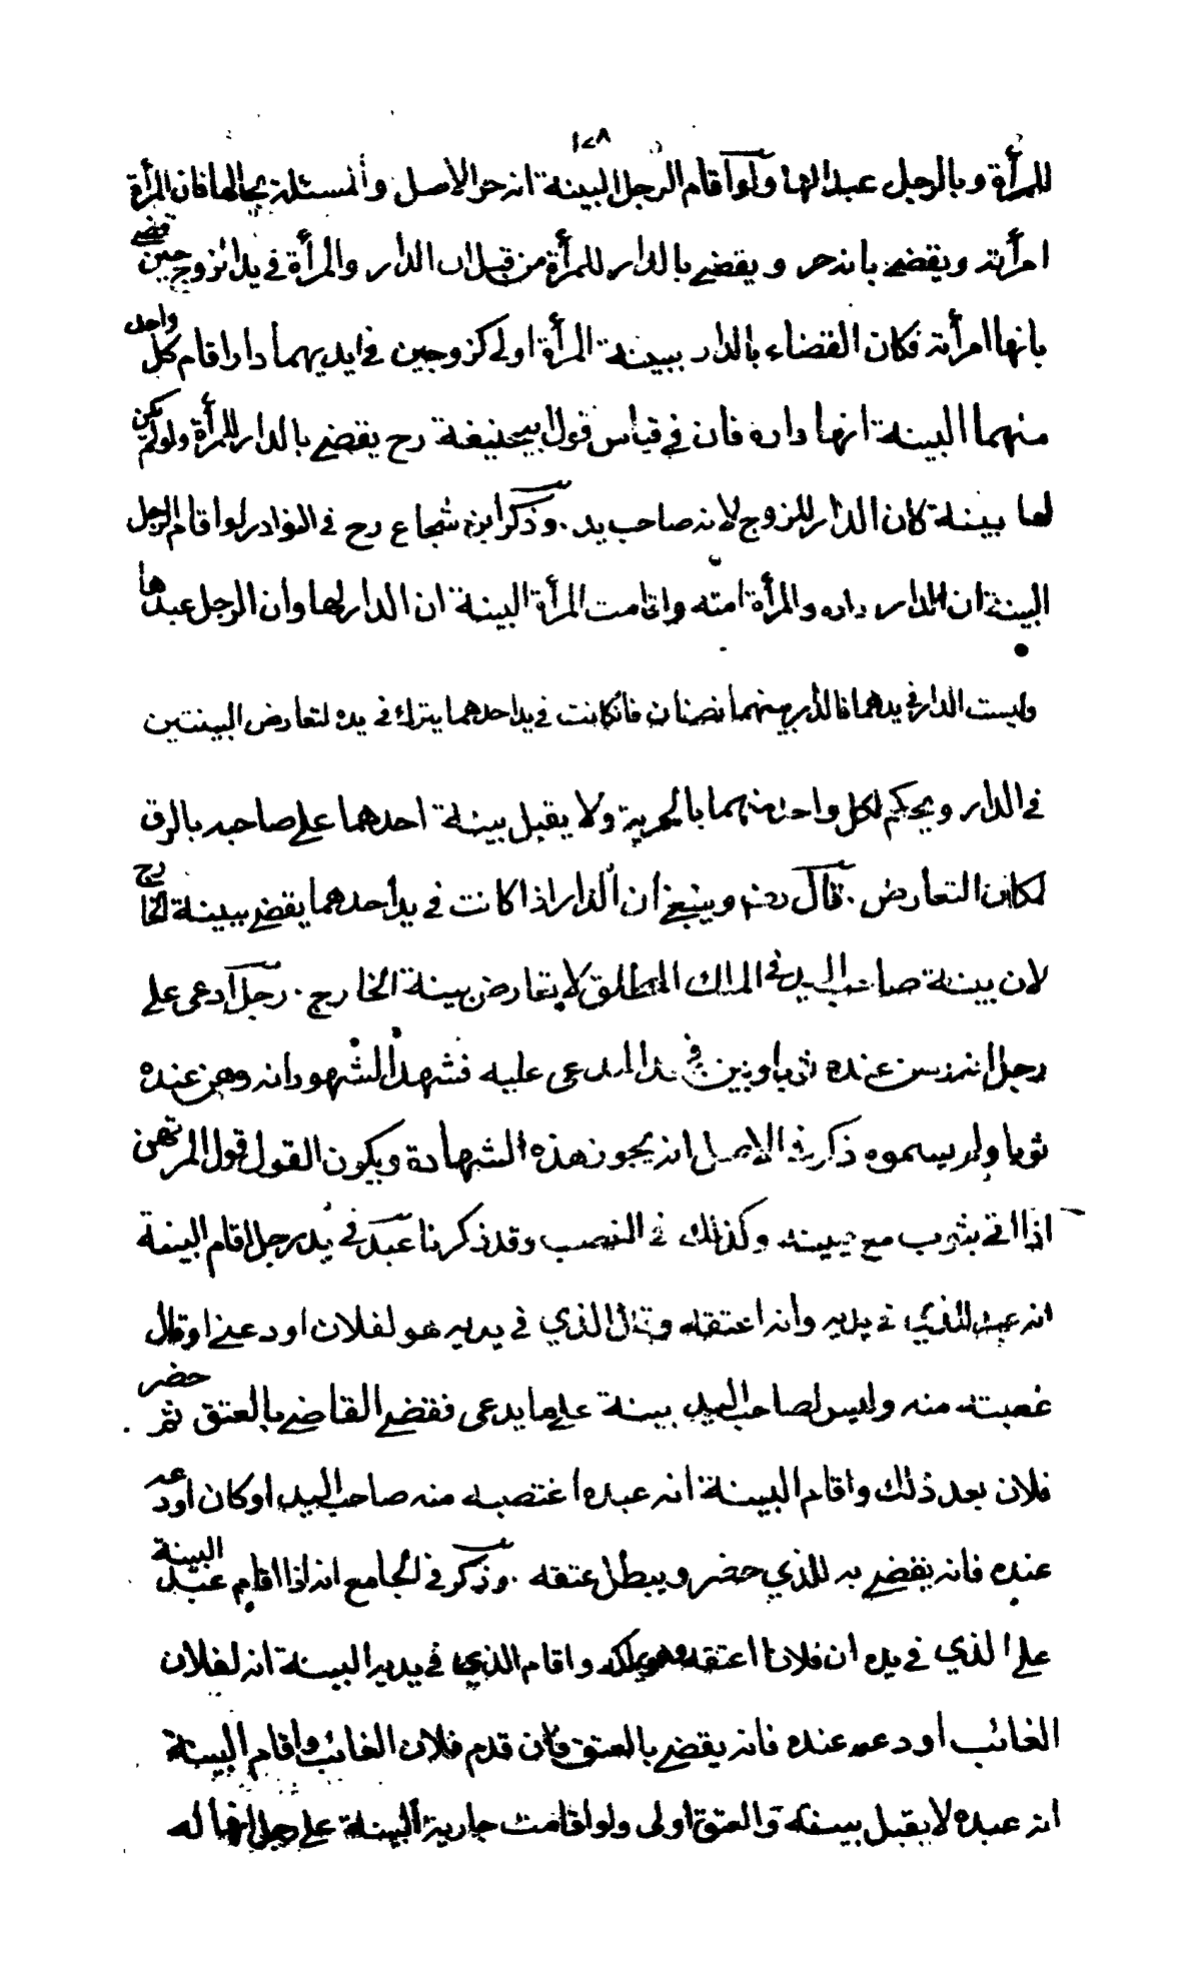 ١٤٨
للمرأة وبالرجل عبدا لها ولو اقام الرجل البينة انه حر الاصل والمسئلة بحالها فان المرأة
امرأته ويقضى بانه حر ويقضى بالدار للمرأة من قبل ان الدار والمرأة في يد الزوج حين قضى
بانها امرأته فكان القضاء بالدار ببينة المرأة اولى كزوجين في ايديهما دار اقام كل واحد
منهما البينة انها داره فان في قياس قول ابيحنيفة رح يقضى بالدار للمرأة ولو لم يكن
لها بينة كان الدار للزوج لانه صاحب يد . وذكر ابن شجاع رح في النوادر لو اقام الرجل
البينة ان الدار داره والمرأة امته واقامت المرأة البينة ان الدار لها وان الرجل عبدها
وليست الدار في يدهما فالدار بينهما نصفان فانكانت في يد احدهما يترك في يده لتعارض البينتين
في الدار ويحكم لكل واحد منهما بالحرية ولا يقبل بينة احدهما على صاحبه بالرق
لمكان التعارض . قال رضه وينبغى ان الدار اذا كانت في يد احدهما يقضى ببينة الخارج
لان بينة صاحب اليد في الملك المطلق لا يعارض بينة الخارج . رجل ادعى على
رجل انه رهن عنده ثوبا وبين في يد المدعى عليه فشهد الشهود انه رهن عنده
ثوبا ولم يسموه ذكر في الاصل انه يجوز هذه الشهادة ويكون القول قول المرتهن
اذا اتى بثوب مع يمينه وكذلك في الغصب وقد ذكرنا عبد في يد رجل اقام البينة
انه عبد الذي في يديه وانه اعتقه وقال الذي في يديه هو لفلان اودعنى او قال
غصبته منه وليس لصاحب اليد بينة على ما يدعى فقضى القاضى بالعتق ثم حضر
فلان بعد ذلك واقام البينة انه عبده اغتصبه منه صاحب اليد او كان اودعه
عنده فانه يقضى به للذي حضر ويبطل عتقه . وذكر في الجامع انه اذا اقام عبد البينة
على الذي في يده ان فلانا اعتقه وهو يملكه واقام الذي في يديه البينة انه لفلان
الغائب اودعه عنده فانه يقضى بالعتق فان قدم فلان الغائب واقام البينة
انه عبده لا يقبل بينته والعتق اولى ولو اقامت جارية البينة على رجل انها له